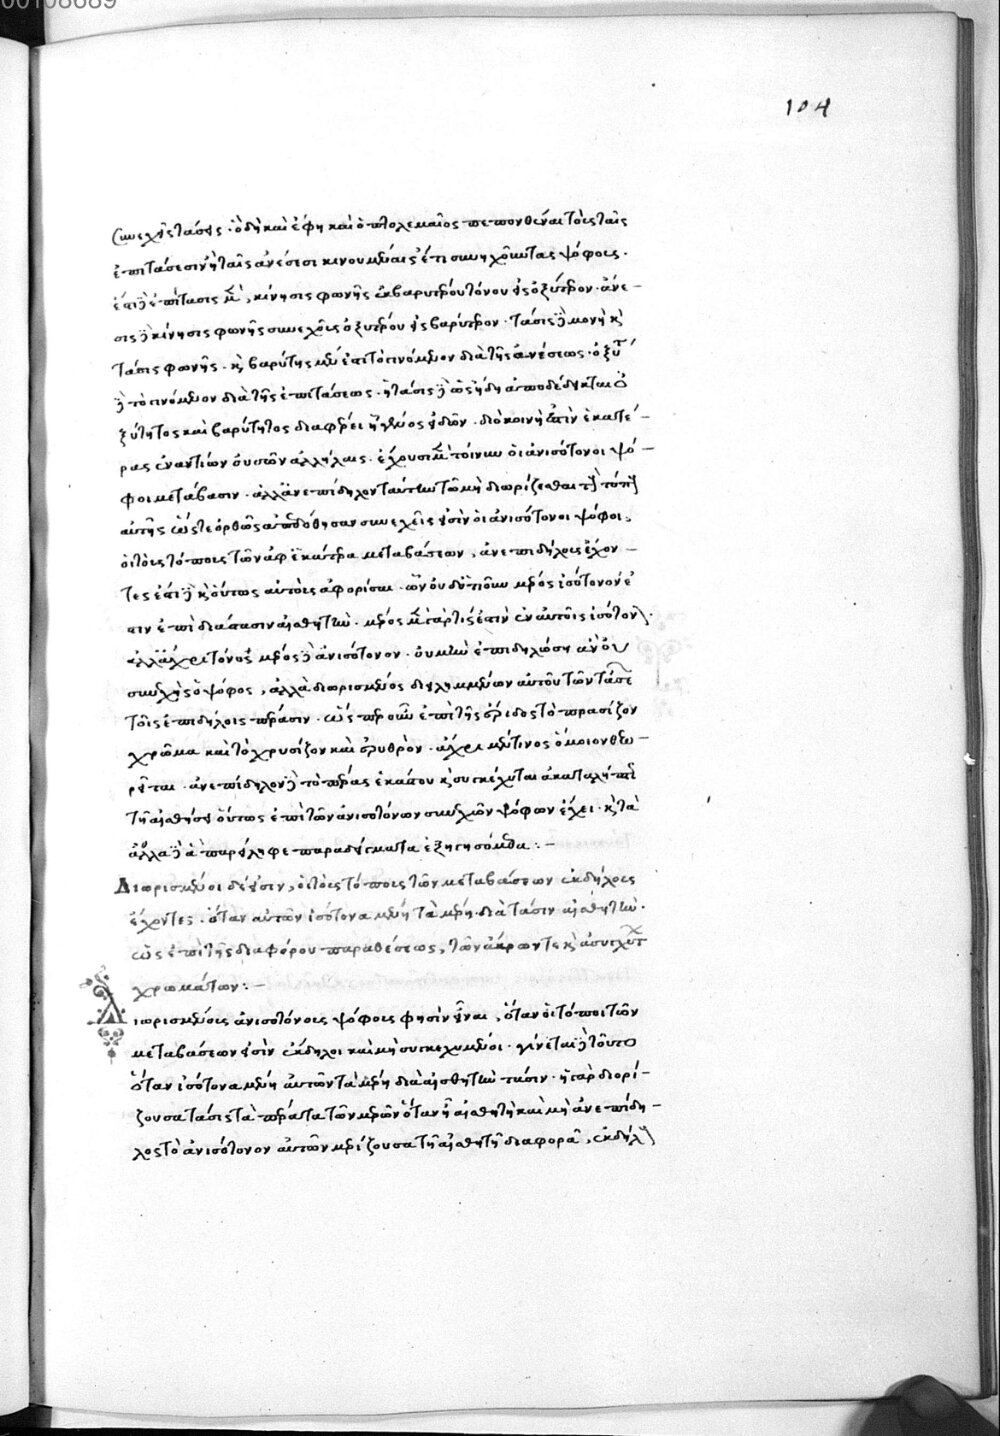 00108689
104
συνεχὴς τάσις. ὃ δὴ καὶ ἔφη καὶ ὁ πτολεμαῖος πεπονθέναι τοὺς ταῖς
ἐπιτάσεσιν ἢ ταῖς ἀνέσεσι κινουμέναις ἔτι συνηχοῦντας ψόφους.
ἔστι δὲ ἐπίτασις μὲν, κίνησις φωνῆς ἐκ βαρυτέρου τόνου εἰς ὀξύτερον. ἄνε-
σις δὲ κίνησις φωνῆς συνεχοῦς ὀξυτέρου εἰς βαρύτερον. τάσις δὲ μονὴ καὶ
στάσις φωνῆς. καὶ βαρύτης μὲν ἐστὶ τὸ γινόμενον διὰ τῆς ἀνέσεως. ὀξύτ
δὲ τὸ γινόμενον διὰ τῆς ἐπιτάσεως. ἡ τάσις δὲ ὡς ἤδη ἀποδέδεικται ὀ
ξύτητος καὶ βαρύτητος διαφέρει ᾗ γένος εἰδῶν. διὸ κοινὴ ἐστὶν ἑκατέ-
ρας ἐναντίων οὐσῶν ἀλλήλαις. ἔχουσι μὲν τοίνυν οἱ ἀνισότονοι ψό-
φοι μετάβασιν. ἀλλ' ἀνεπίδηλον ταύτην τῷ μὴ διωρίζεσθαι τοὺς τόπους
αὐτῆς ὥστε ὀρθῶς ἀπεδόθησαν συνεχεῖς εἰσὶν οἱ ἀνισότονοι ψόφοι,
οἱ τοὺς τόπους τῶν ἀφ' ἑκάτερα μεταβάσεων, ἀνεπιδήλους ἔχον-
τες ἔστι δὲ καὶ οὕτως αὐτοὺς ἀφορίσαι. ὧν οὐδὲ ὁτιοῦν μέρος ἰσότονόν ἐ
στιν ἐπὶ διάστασιν αἰσθητήν. μέρος μὲν γὰρ τίς ἐστὶν ἐν αὐτοῖς ἰσότον.
ἀλλ' ἄχρι τόνος μέρος δὲ ἀνισότονον. οὐ μὴν ἐπιδηλώσῃ
συνεχὴς ὁ ψόφος, ἀλλὰ διωρισμένος διειλημμένων αὐτοῦ τῶν τάσε
τοῖς ἐπιδήλοις πέρασιν. ὡς περ οὖν ἐπὶ τῆς ἴριδος τὸ πρασίζον
χρῶμα καὶ τὸ χρυσίζον καὶ ἐρυθρὸν. ἄχρι μέν τινος ὅμοιον θεω-
ρεῖται. ἀνεπίδηλον δὲ τὸ πέρας ἑκάστου καὶ συγκέχυται ἀκαταλήπτ
τῇ αἰσθήσει οὕτως ἐπὶ τῶν ἀνισοτόνων συνεχῶν ψόφων ἔχει. καὶ τὰ
ἄλλα δὲ ἃ παρείληφε παραδείγματα ἐξηγησόμεθα:-
Διωρισμένοι δέ εἰσιν, οἱ τοὺς τόπους τῶν μεταβάσεων ἐκδήλους
ἔχοντες. ὅταν αὐτῶν ἰσότονα μένῃ τὰ μέρη διὰ τάσιν αἰσθητήν.
ὡς ἐπὶ τῆς διαφόρου παραθέσεως, τῶν ἀκρων τε καὶ ἀσυγχύτ
χρωμάτων:-
Διωρισμένους ἀνισοτόνους ψόφους φησὶν εἶναι, ὅταν οἱ τόποι τῶν
μεταβάσεων εἰσὶν ἔκδηλοι καὶ μὴ συγκεχυμένοι. γίνεται δὲ τοῦτο
ὅταν ἰσότονα μένῃ αὐτῶν τὰ μέρη διὰ αἰσθητὴν τάσιν. ἡ γὰρ διορί-
ζουσα τάσις τὰ πέρατα τῶν μερῶν ὅταν ᾖ αἰσθητὴ καὶ μὴ ἀνεπίδη-
λος τὸ ἀνισότονον αὐτῶν μερίζουσα τῇ αἰσθητῇ διαφορᾷ, ἐκδήλους